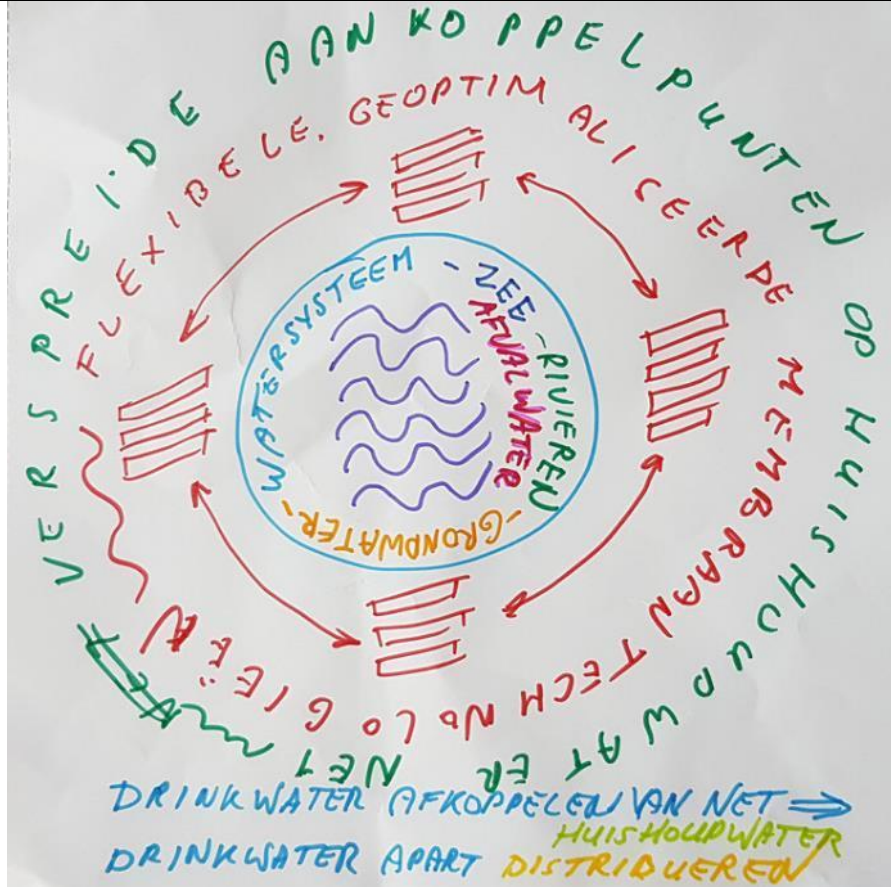 VERSPREIDE AANKOPPELPUNTEN OP HUISHOUDWATER NET
FLEXIBELE, GEOPTIMALISEERDE MEMBRAANTECHNOLOGIEËN
WATERSYSTEEM - ZEE - RIVIEREN - GRONDWATER -
AFVALWATER
DRINKWATER AFKOPPELEN VAN NET ⇒
HUISHOUDWATER
DRINKWATER APART DISTRIBUEREN